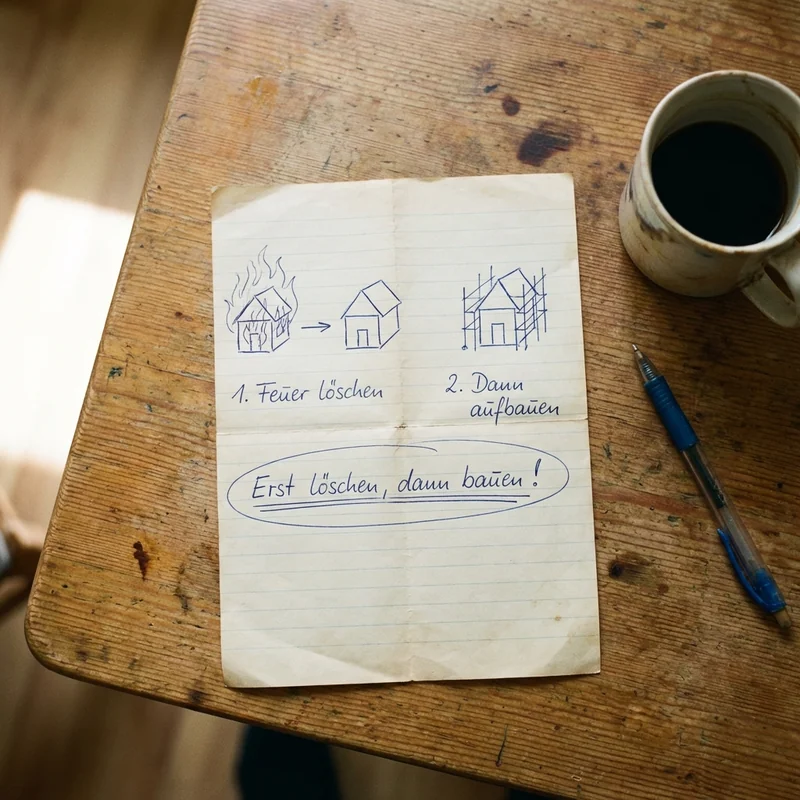 1. Feuer löschen
2. Dann
aufbauen
Erst löschen, dann bauen!